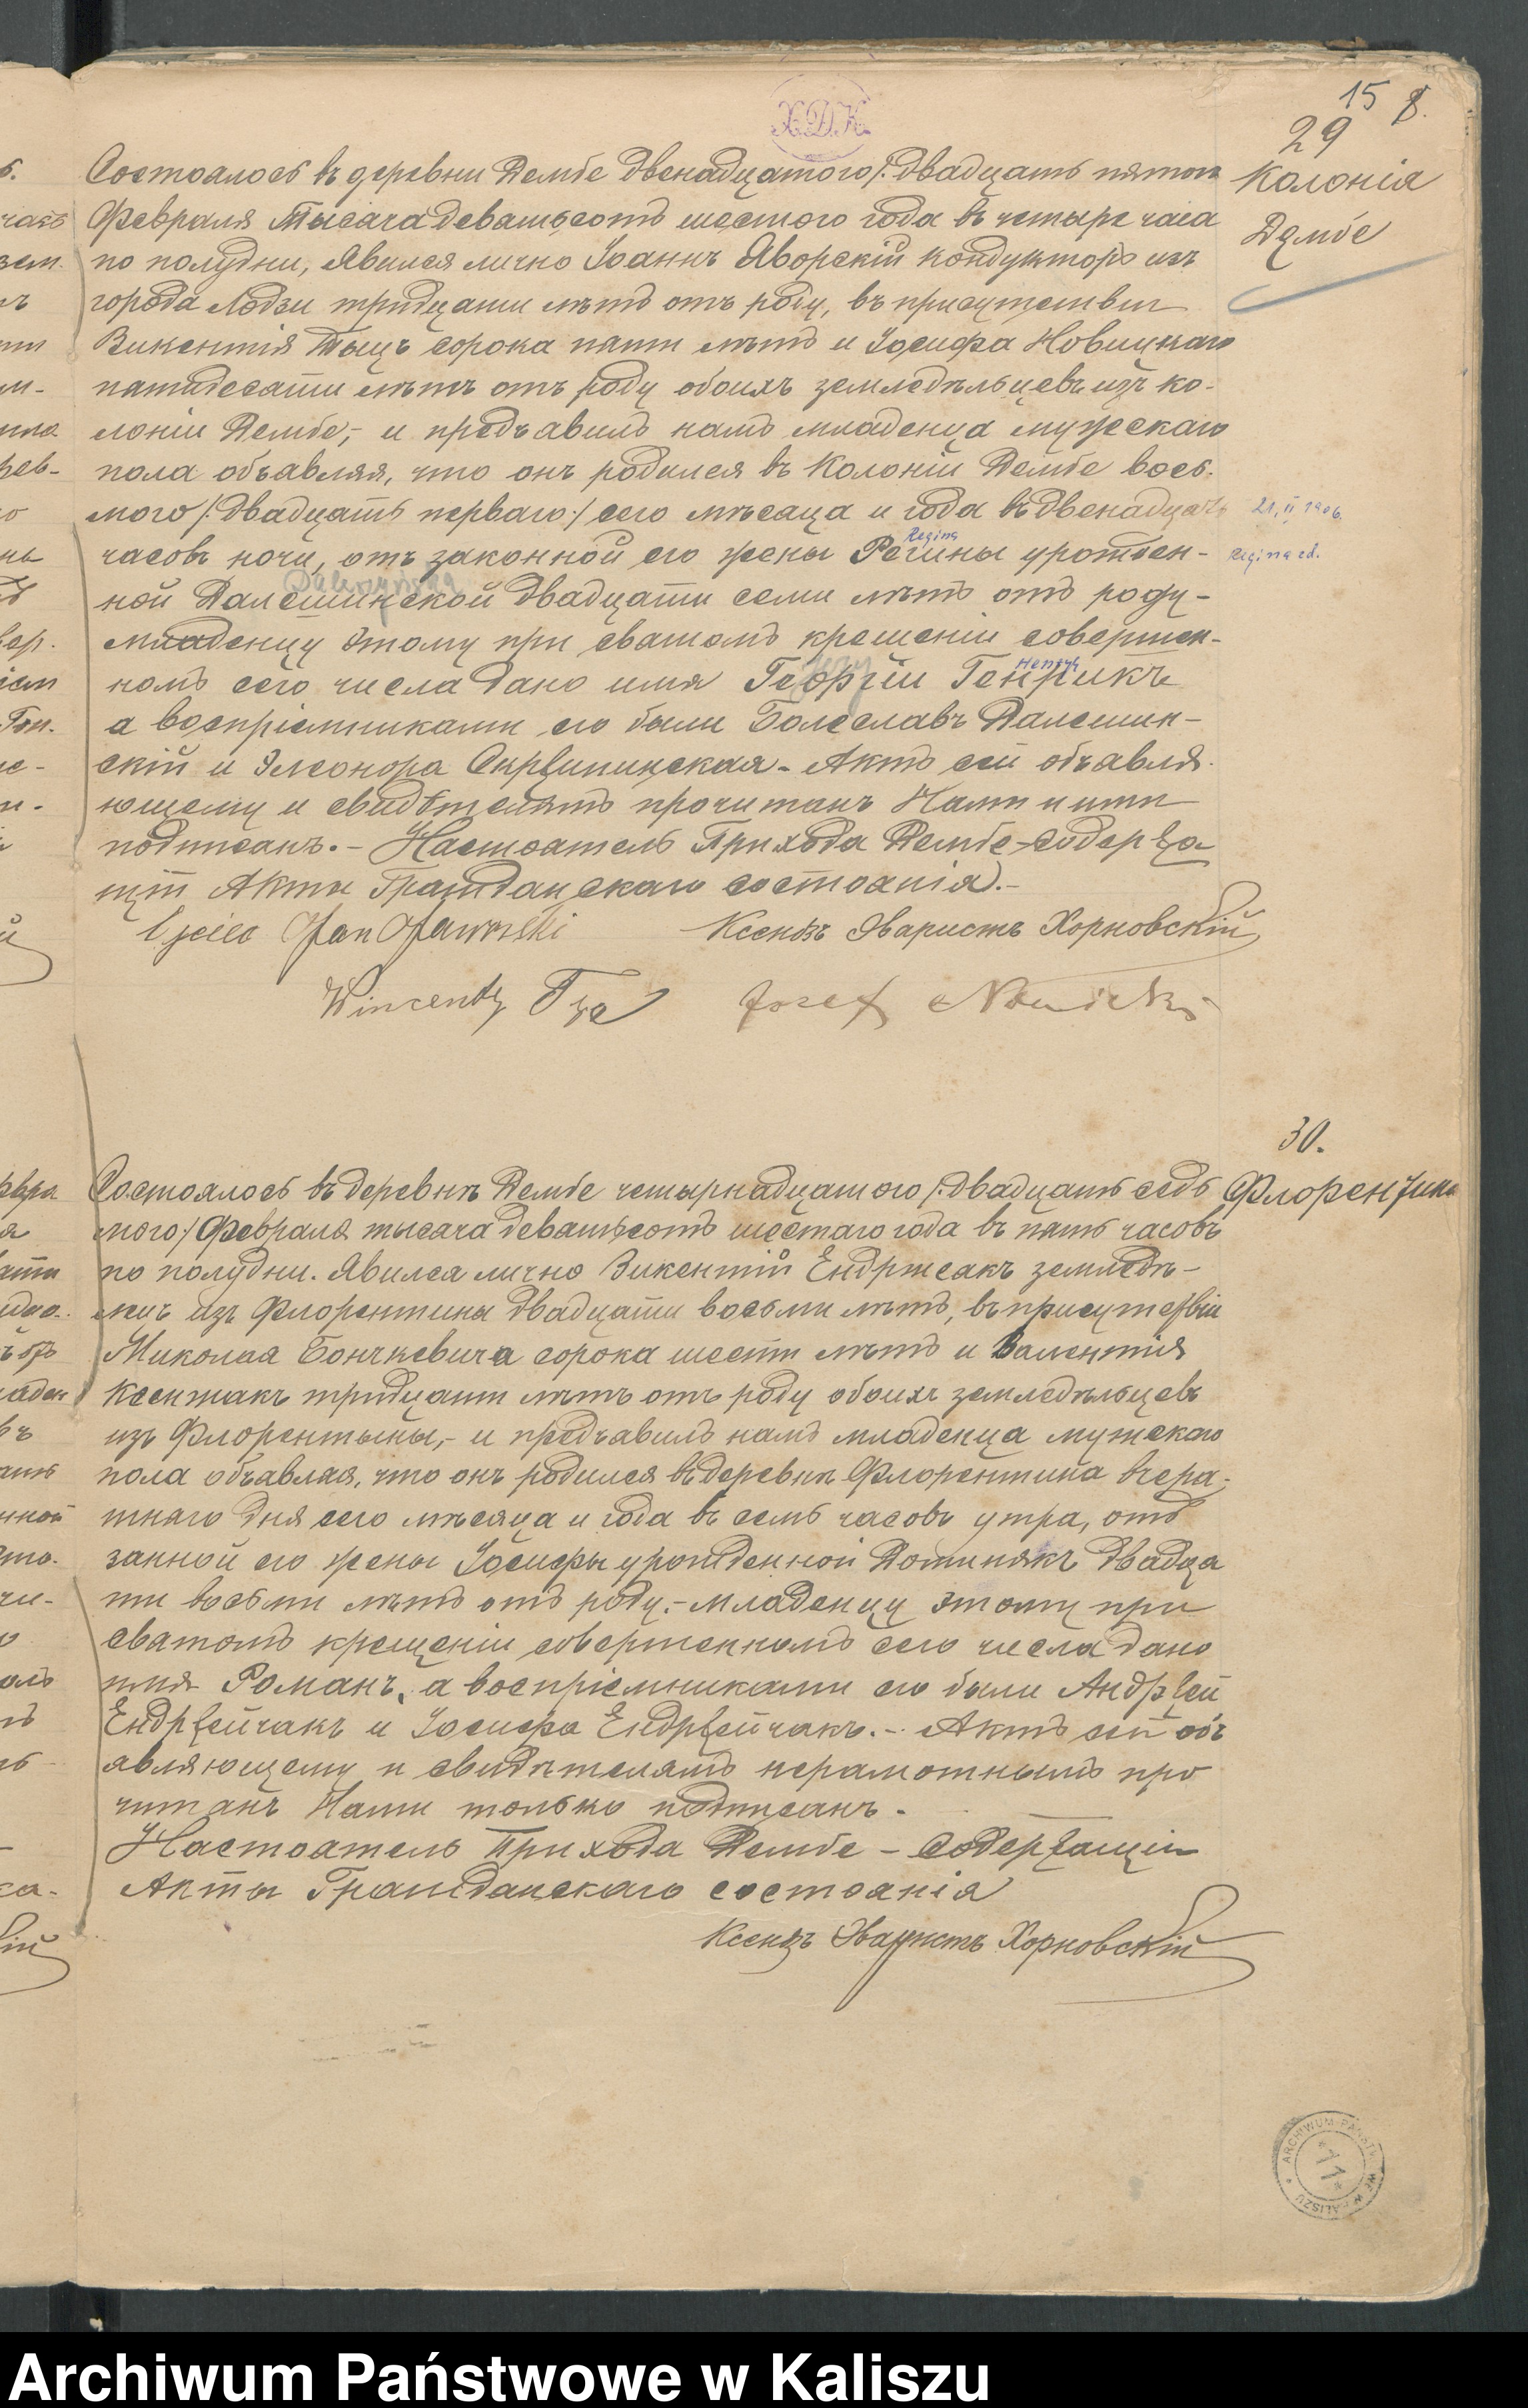 15 8.
Х.Д.К.
29
Колонія
Дембе
Состоялось въ деревни Дембе двенадцатого /: двадцать пятого
Февраля тысяча девятьсотъ шестого года въ четыре часа
по полудни, явился лично Іоаннъ Яворскій кондукторъ изъ
города Лодзи тридцати лѣтъ отъ роду, въ присутствіи
Викентія Тыцъ сорока пяти лѣтъ и Іосифа Новицкаго
пятидесяти лѣтъ отъ роду обоихъ земледѣльцевъ изъ ко-
лоніи Дембе,- и предъявилъ намъ младенца мужескаго
пола объявляя, что онъ родился въ Колоніи Дембе вось-
мого /: двадцать перваго :/ сего мѣсяца и года въ двенадцать
21, II 1906.
часовъ ночи, отъ законной его жены Регины урожден-
Regina
Regina ed.
ной Далешинской двадцати семи лѣтъ отъ роду-
младенцу этому при святомъ крещеніи совершен-
номъ сего числа дано имя Георгіи Генрикъ
Henryk
а воспріемниками его были Болеславъ Далешин-
скій и Элеонора Скржипинская. Актъ сей объявля-
ющему и свидѣтелямъ прочитанъ Нами и ими
подписанъ.- Настоятель Прихода Дембе-содержа
щій Акты Гражданскаго состоянія.-
Ojciec Jan Jaworski Ксендзъ Эваристъ Хорновскій
Wincenty Tyc Jozef Nowicki
30.
Флорентина
Состоялось въ деревнѣ Дембе четырнадцатого /: двадцать седь
мого :/ Февраля тысяча девятьсотъ шестаго года въ пять часовъ
по полудни. Явился лично Викентій Ендржеакъ земледѣ-
лецъ изъ Флорентина двадцати восьми лѣтъ, въ присутствіи
Миколая Бончкевича сорока шести лѣтъ и Валентія
Ксенжакъ тридцати лѣтъ отъ роду обоихъ земледѣльцевъ
изъ Флорентыны,- и предъявилъ намъ младенца мужескаго
пола объявляя, что онъ родился въ деревнѣ Флорентина вчера-
шняго дня сего мѣсяца и года въ семь часовъ утра, отъ
законной его жены Іосифы урожденной Доминякъ двадца
ти восьми лѣтъ отъ роду.- младенцу этому при
святомъ крещеніи совершенномъ сего числа дано
имя Романъ, а воспріемниками его были Андржей
Ендржейчакъ и Іосифа Ендржейчакъ.- Актъ сей объ
являющему и свидѣтелямъ неграмотнымъ про
читанъ Нами только подписанъ.
Настоятель Прихода Дембе - содержащій
Акты Гражданскаго состоянія
Ксендзъ Эваристъ Хорновскій
ARCHIWUM PAŃSTW. WE W KALISZU
11
Archiwum Państwowe w Kaliszu